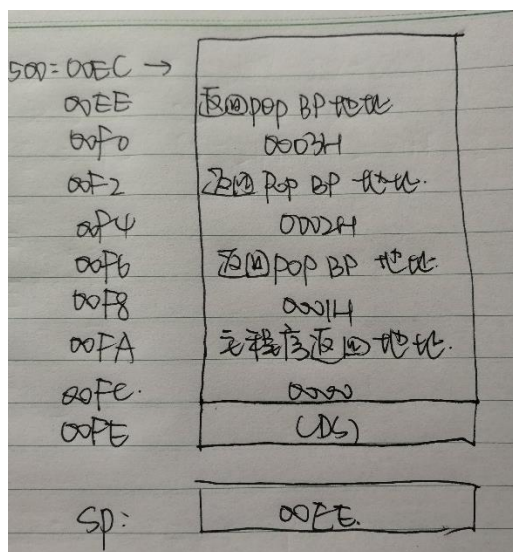 500:00EC →
00EE 返回POP BP地址
00F0 0003H
00F2 返回POP BP 地址.
00F4 0002H
00F6 返回POP BP 地址.
00F8 0001H
00FA 主程序返回地址.
00FC. 0000
00FE (DS)
SP: 00EE.